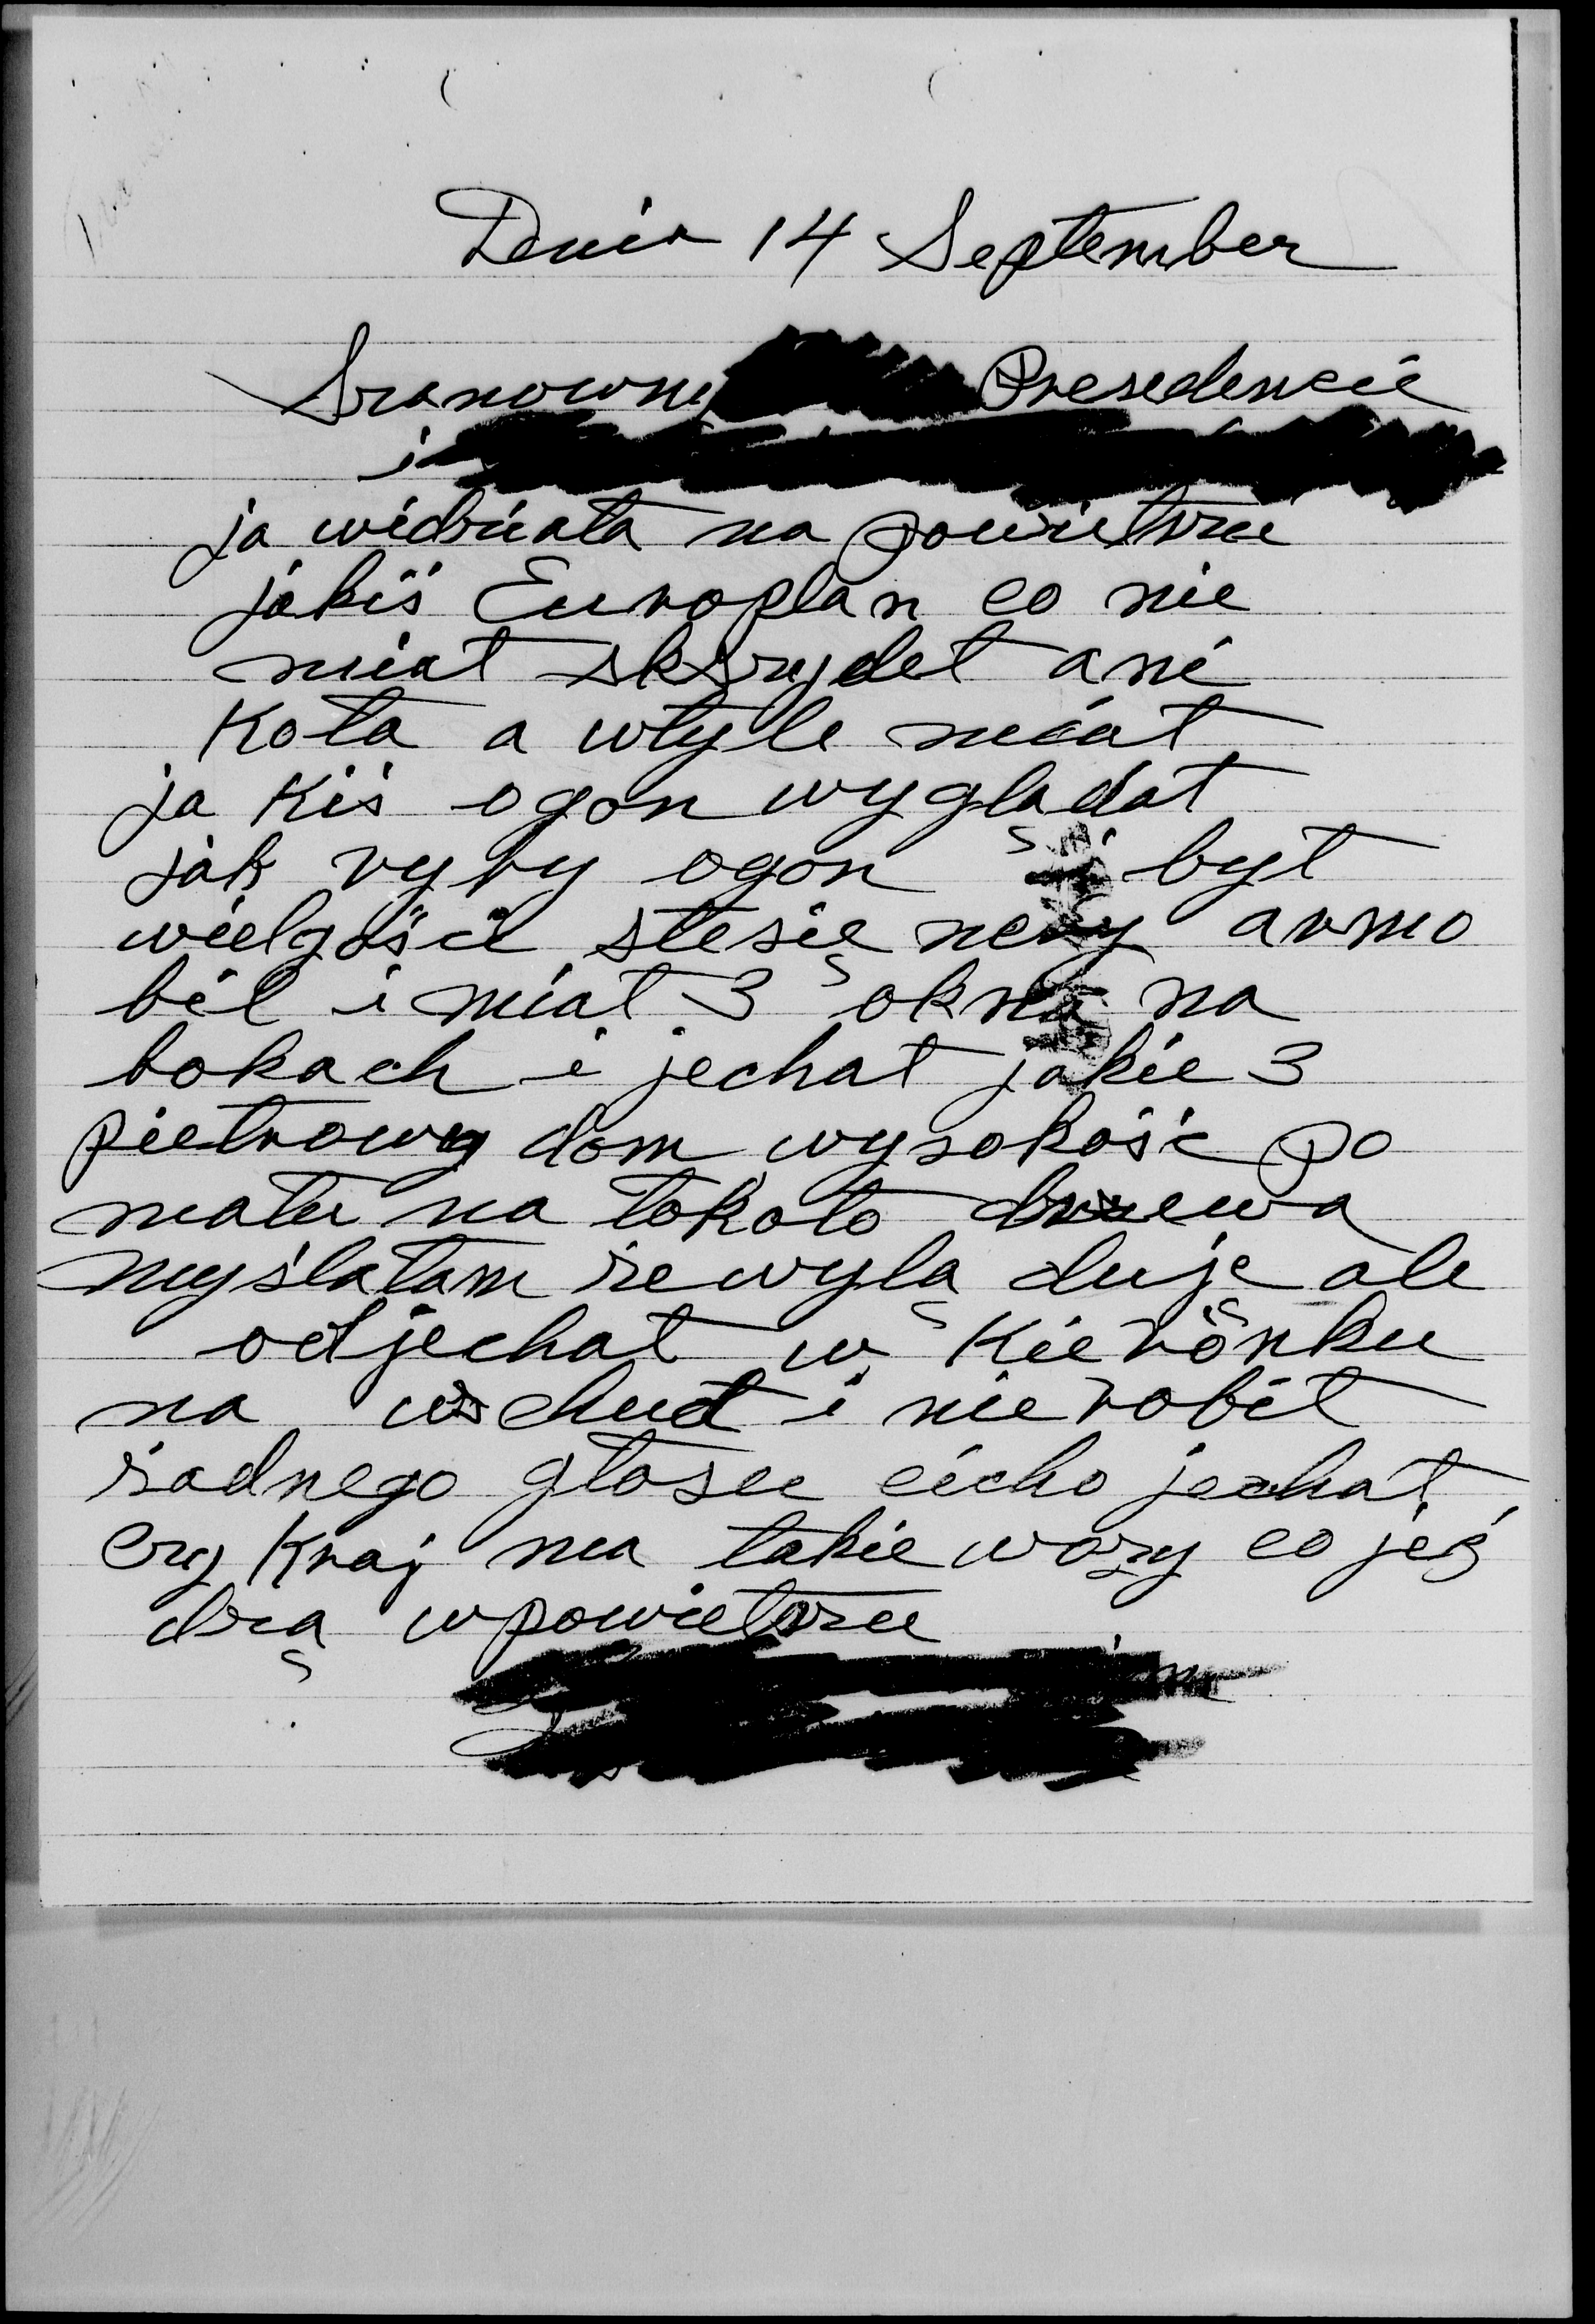 Dnia 14 September
Sranowny Presedencie
i
ja widziała na powietrzu
jakiś Europlan co nie
miał skrzydeł ani
koła a wtyle miał
ja kiś ogon wyglądał
jak ryby ogon i był
wielgości stesie armo
bil i miał 3 okna na
bokach i jechał jakie 3
pietrowy dom wysokość po
matu na tokoło drzewa
myślałam że wylą duje ale
odjechał w kierönku
na wschud i nie robił
żadnego głosu cicho jechał
Czy kraj ma takie wozy co jeź
dzą wpowietrzu